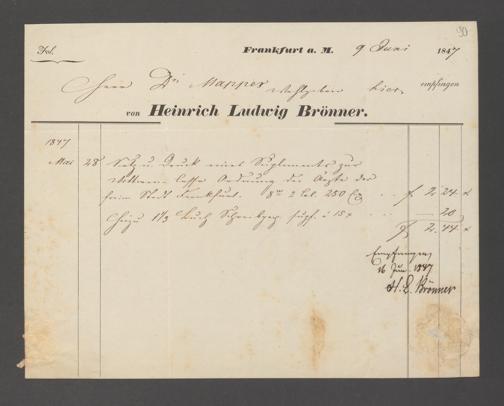 30
Fol.
Frankfurt a. M. 9 Juni 1847
Herr Dr. Mapper Wohlgeboren hier, empfingen
von Heinrich Ludwig Brönner.
1847
Mai 28 Satz u. Druck eines Suplements zur
Wittwen Casse Ordnung der Aerzte der
freien Stadt Frankfurt. 8° 2 Bl. 250 Ex f 2.24 x
Hiezu 1 1/3 Buch Schreibpap. à 15 x 20
f 2.44 x
Empfangen
16 Jun. 1847
H. L. Brönner